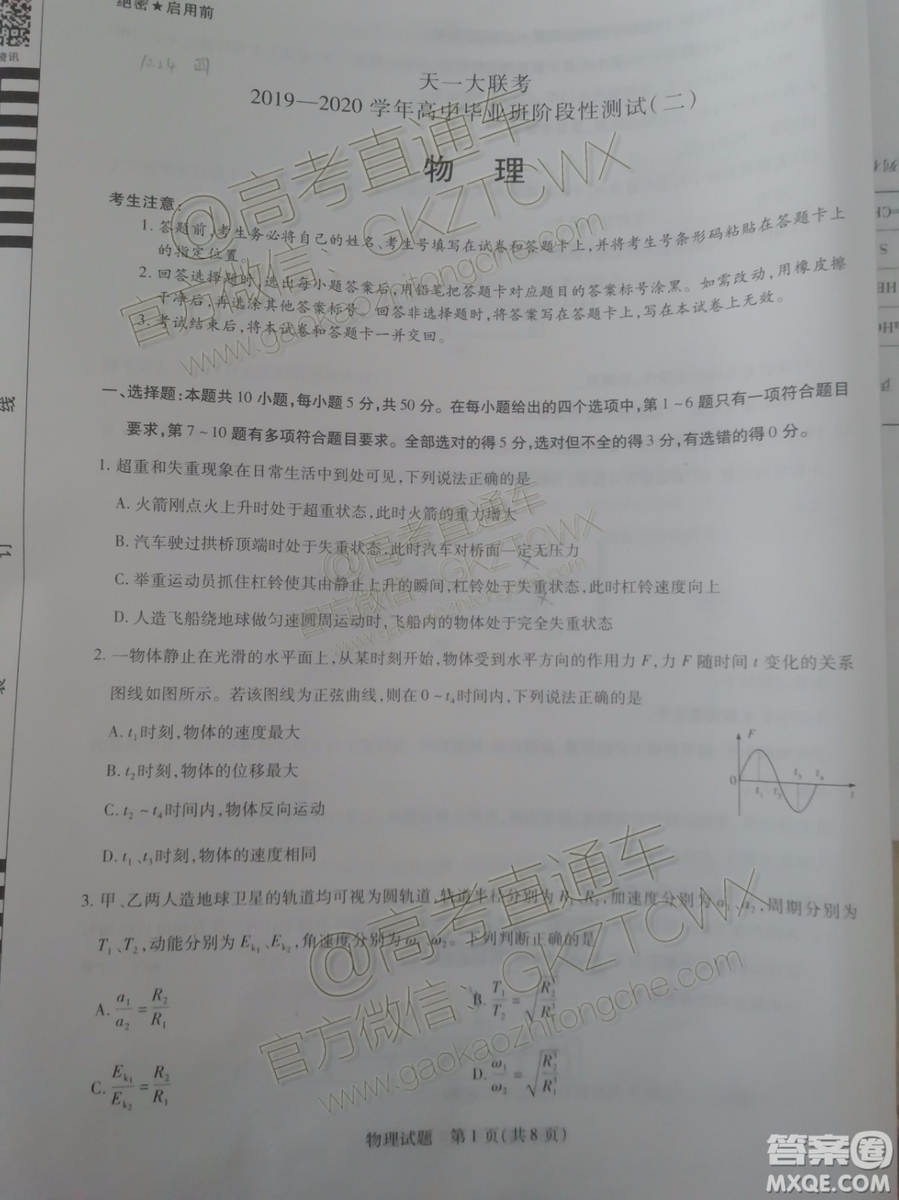 绝密★启用前
天一大联考
2019—2020 学年高中毕业班阶段性测试(二)
物 理
考生注意:
1. 答题前,考生务必将自己的姓名、考生号填写在试卷和答题卡上,并将考生号条形码粘贴在答题卡上
的指定位置。
2. 回答选择题时,选出每小题答案后,用铅笔把答题卡对应题目的答案标号涂黑。如需改动,用橡皮擦
干净后,再选涂其他答案标号。回答非选择题时,将答案写在答题卡上,写在本试卷上无效。
3. 考试结束后,将本试卷和答题卡一并交回。
一、选择题:本题共 10 小题,每小题 5 分,共 50 分。在每小题给出的四个选项中,第 1~6 题只有一项符合题目
要求,第 7~10 题有多项符合题目要求。全部选对的得 5 分,选对但不全的得 3 分,有选错的得 0 分。
1. 超重和失重现象在日常生活中到处可见,下列说法正确的是
A. 火箭刚点火上升时处于超重状态,此时火箭的重力增大
B. 汽车驶过拱桥顶端时处于失重状态,此时汽车对桥面一定无压力
C. 举重运动员抓住杠铃使其由静止上升的瞬间,杠铃处于失重状态,此时杠铃速度向上
D. 人造飞船绕地球做匀速圆周运动时,飞船内的物体处于完全失重状态
2. 一物体静止在光滑的水平面上,从某时刻开始,物体受到水平方向的作用力 F,力 F 随时间 t 变化的关系
图线如图所示。若该图线为正弦曲线,则在 0~t₄时间内,下列说法正确的是
A. t₁时刻,物体的速度最大
B. t₂时刻,物体的位移最大
C. t₂~t₄时间内,物体反向运动
D. t₁、t₃时刻,物体的速度相同
F
0
t₁
t₂
t₃
t₄
t
3. 甲、乙两人造地球卫星的轨道均可视为圆轨道,轨道半径分别为 R₁、R₂,加速度分别为 a₁、a₂,周期分别为
T₁、T₂,动能分别为 Eₖ₁、Eₖ₂,角速度分别为 ω₁、ω₂。下列判断正确的是
A. a₁/a₂ = R₂/R₁
B. T₁/T₂ = √(R₁³/R₂³)
C. Eₖ₁/Eₖ₂ = R₂/R₁
D. ω₁/ω₂ = √(R₂³/R₁³)
物理试题 第 1 页(共 8 页)
@高考直通车
官方微信: GKZTCWX
www.gaokaozhitongche.com
@高考直通车
官方微信: GKZTCWX
@高考直通车
官方微信: GKZTCWX
www.gaokaozhitongche.com
线
订
答案圈
MXQE.COM